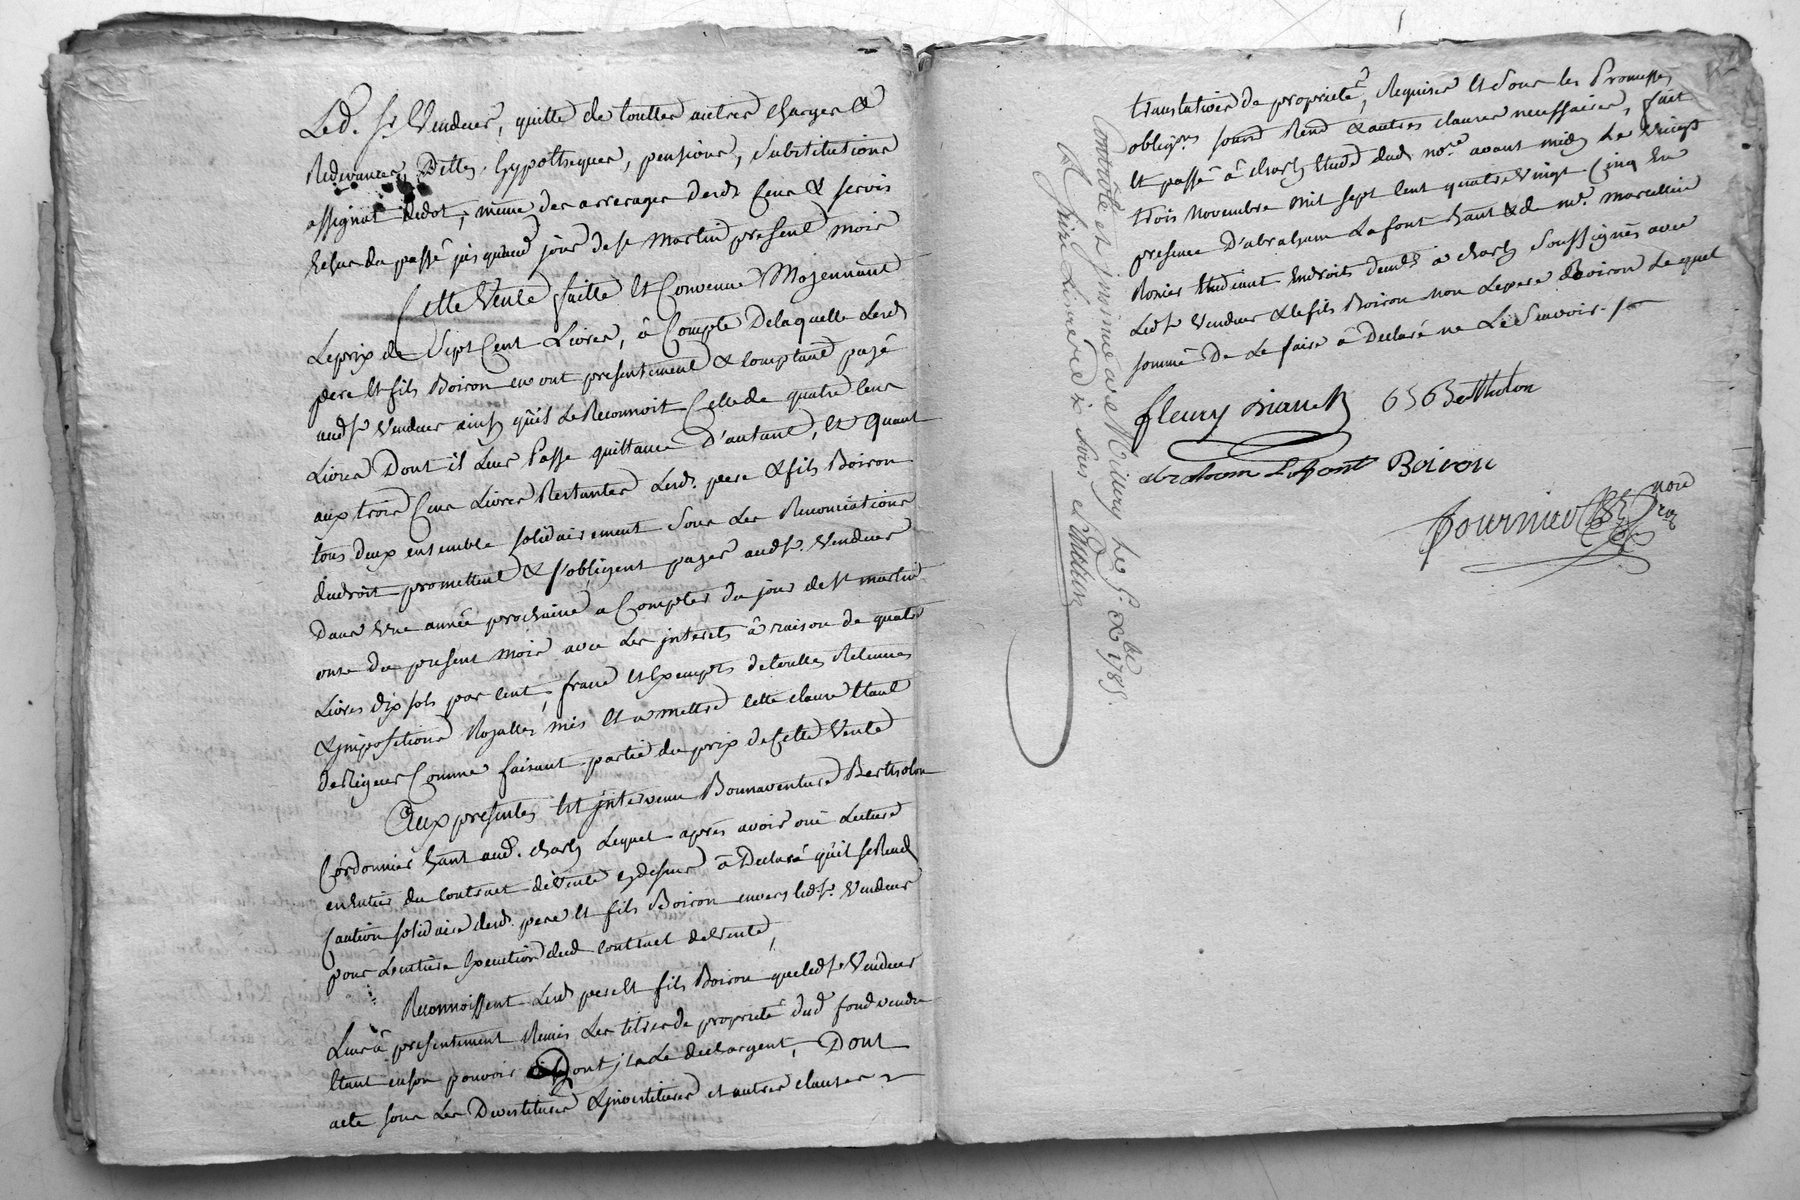 Led. Sr Vendeur, quitte de touttes autres charges &
Redevances, Dettes, hypotheques, pensions, substitutions
assignat dedot, même des arrerages desds Cens & servis
Echus du passé jusqu'aud jour de st martin present mois
Cette Vente faitte Et Convenue Mojennant
Leprix de Sept Cent Livres, â Compte De laquelle Lesds
pere Et fils Boiron en ont presentement & comptant payé
audsr Vendeur ainsy qu'il Le Reconnoit Celle de quatre Cens
Livres Dont il Leur Passe quittance D'autant, Et Quant
aux trois Cens Livres Restantes Lesds. pere & fils Boiron
tous deux ensemble solidairement sous Les Renonciations
dudroit promettent & s'obligent payer audsr Vendeur
Dans Une année prochaine a Compter du jour de st martin
onze du present mois avec Les interets â raison de quatre
Livres dix sols par Cent, franc Et Exempts de touttes Retenues
& impositions Royalles, mis Et a mettre cette clause Etant
deRigueur Comme faisant partie du prix de Cette Vente
Aux presentes Est intervenu Bonnaventure Bertholon
Cordonnier hant aud. charly Lequel après avoir oui Lecture
en Entier du contract de Vente cy dessus â Declaré qu'il se Rend
Caution solidaire desd. pere Et fils Boiron envers ledsr. Vendeur
pour L'entiere Execution dud contract de Vente,
Reconnoissent Lesds pere Et fils Boiron que ledsr Vendeur
Leur â presentement Remis Les titres de proprieté dud fond vendu
Etant en son pouvoir Dont ils Le dechargent, Dont
acte sous Les Devestitures & investitures et autres clauses
translatives de proprieté, Requises Et sous les Promesses
obligons. soumd Renons & autres clauses necessaires, fait
Et passé â charly Etude dud. nore avant midy Le Vingt
trois Novembre mil sept Cent quatre Vingt Cinq En
presence D'abraham Lafont hant & de mr. marcellin
Rosier Etudiant En droits demts â charly soussignés avec
Ledsr Vendeur & Le fils Boiron non Le pere Boiron Lequel
sommé De Le faire â Declaré ne Le Sçavoir
fleury 
Bertholon
abraham Lafont Boiron
fournier nore
Controllé et insinué a Millery Le 5. xbre 1785.